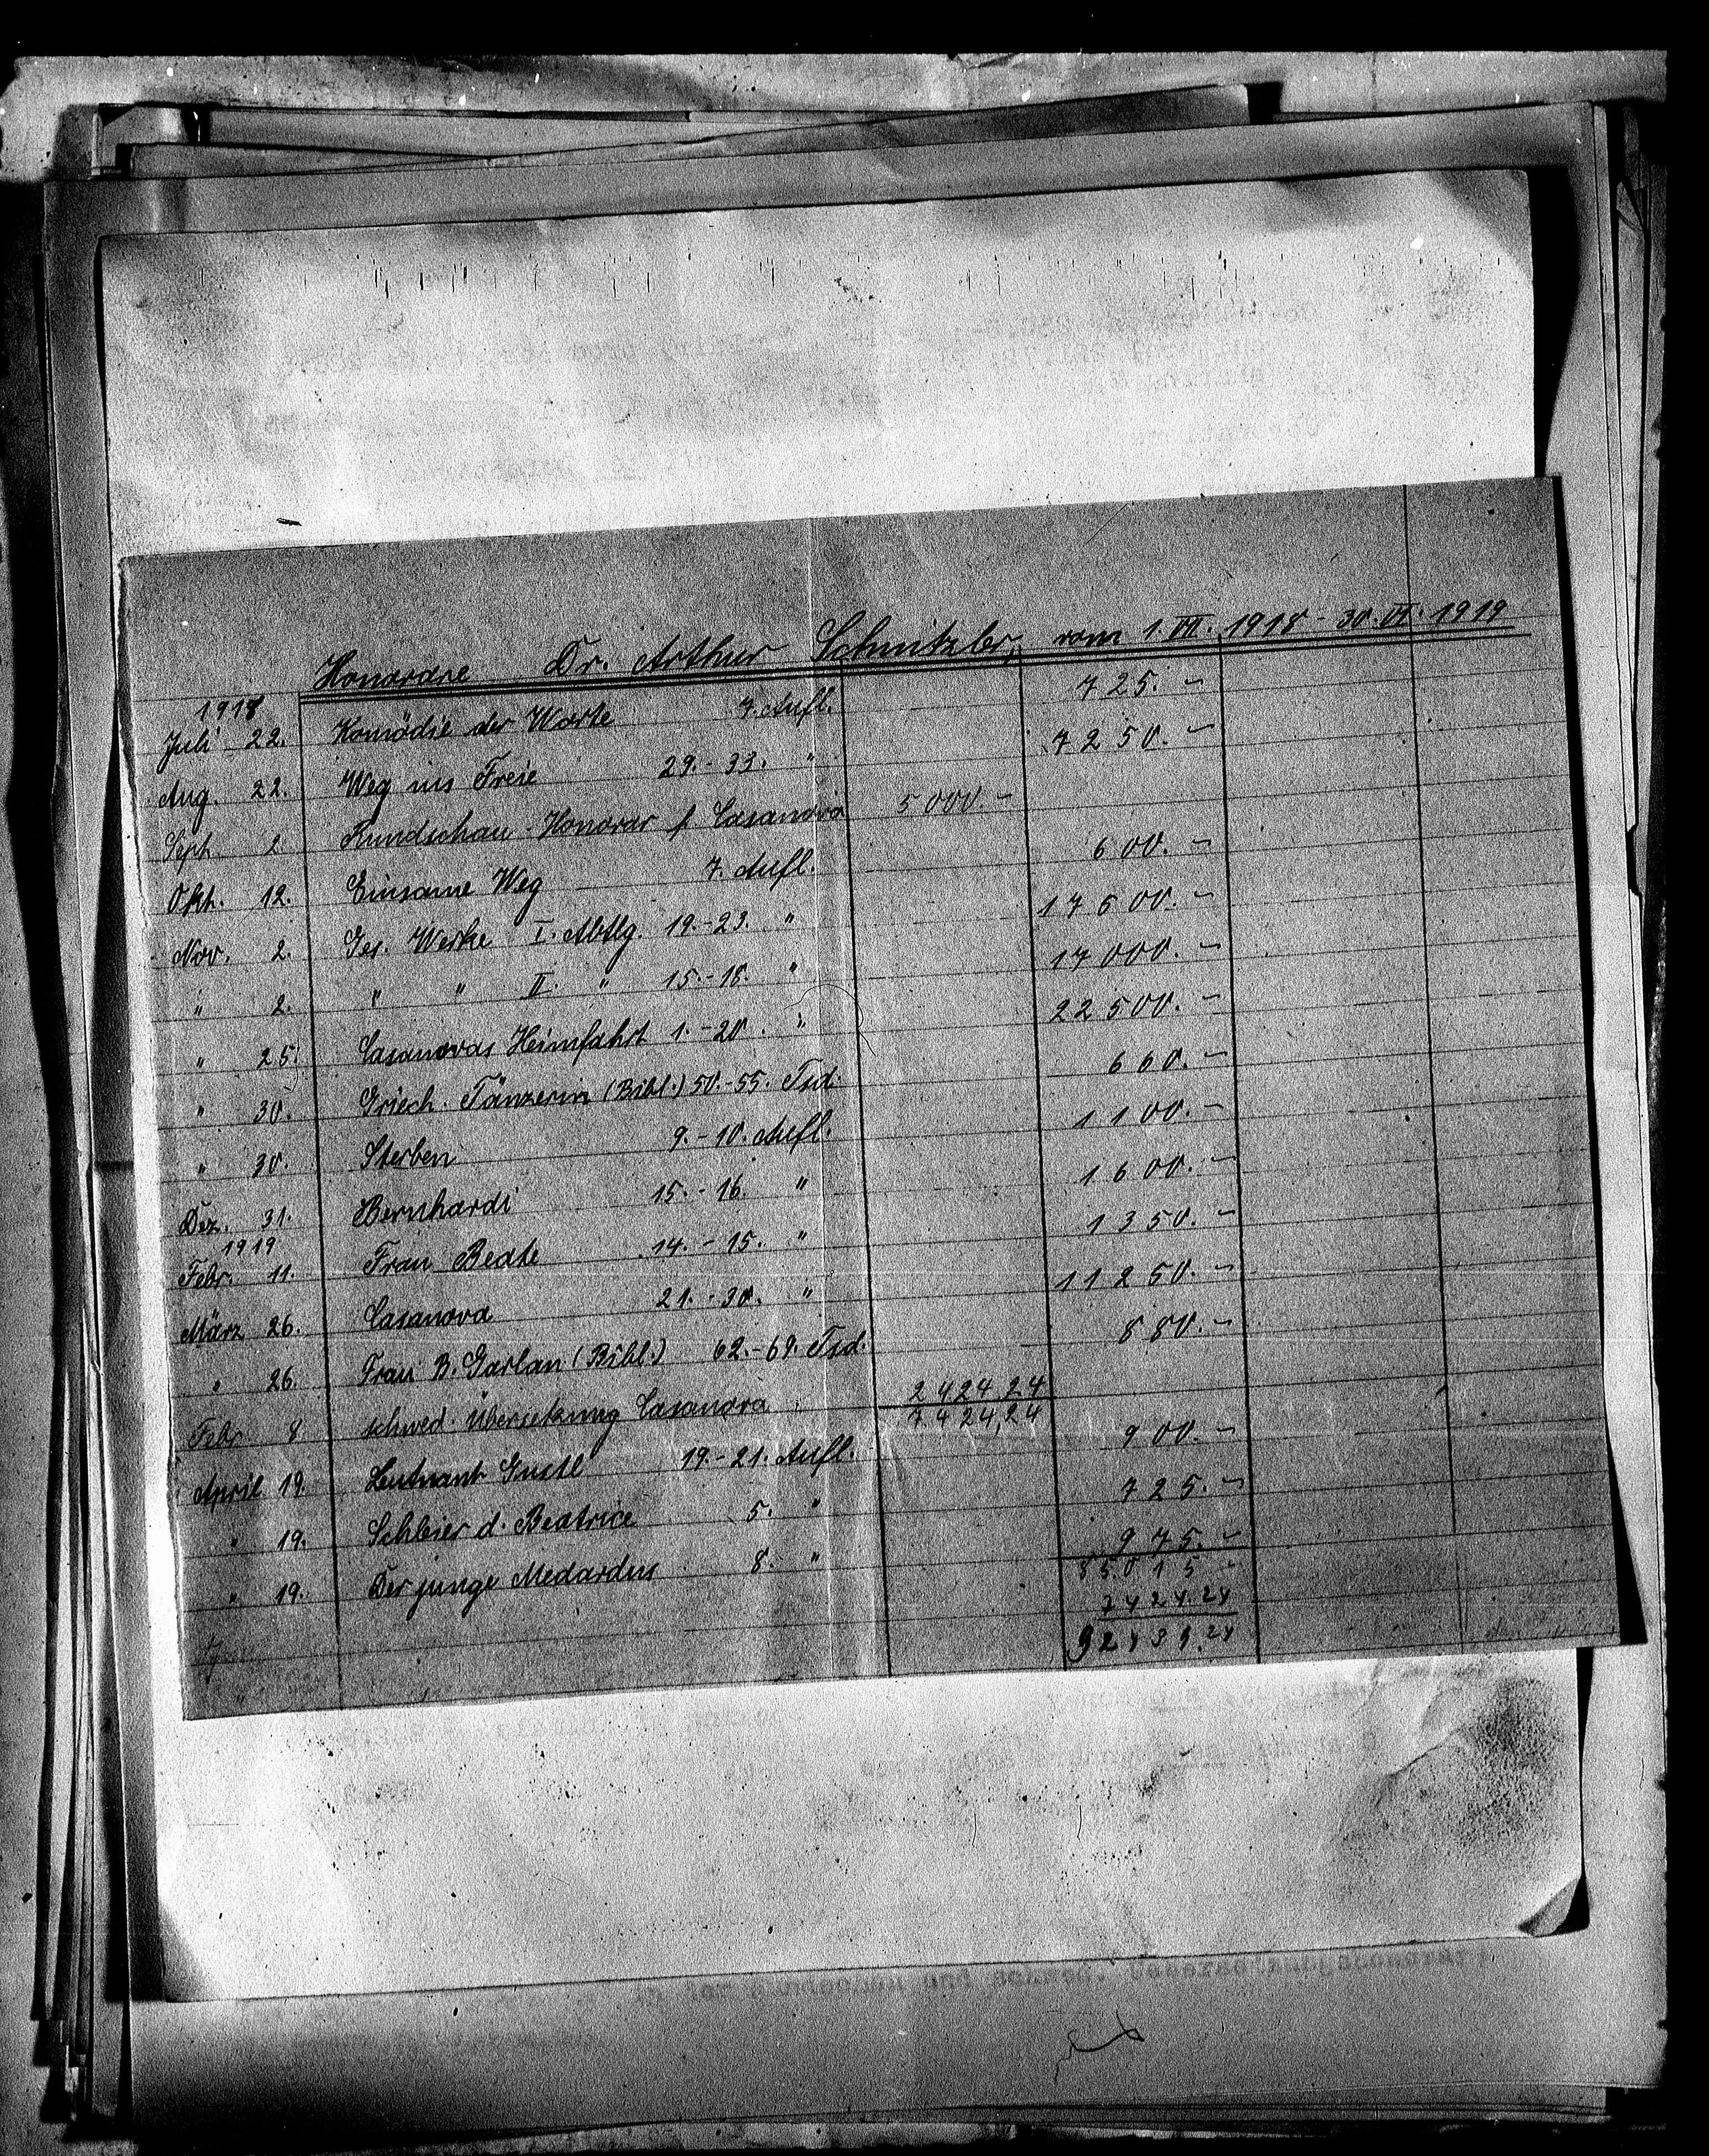 Honorare Dr. Arthur Schnitzler, vom 1. VII. 1918 - 30. VI. 1919
1918
Juli 22. Komödie der Worte 7. Aufl. 725. -
Aug. 22. Weg ins Freie 29. - 33. " 7250. -
Sept. 2 Rundschau - Honorar f. Casanova 5000. -
Okt. 12. Einsame Weg 7. Aufl. 600. -
Nov. 2. Ges. Werke I. Abtlg. 19. - 23. " 17500. -
" 2. " " II. " 15. - 18. " 17000. -
" 25. Casanovas Heimfahrt 1. - 20. " 22500. -
" 30. Griech. Tänzerin (Bibl.) 50. - 55. Tsd. 660. -
" 30. Sterben 9. - 10. Aufl. 1100. -
Dez. 31. Bernhardi 15. - 16. " 1600. -
1919
Febr. 11. Frau Beate 14. - 15. " 1350. -
März 26. Casanova 21. - 30. " 11250. -
" 26. Frau B. Garlan (Bibl.) 62. - 69. Tsd. 880. -
Febr. 8 schwed. Übersetzung Casanova 2424,24
7424,24
April 19. Leutnant Gustl 19. - 21. Aufl. 900. -
" 19. Schleier d. Beatrice 5. " 725. -
" 19. Der junge Medardus 8. " 975. -
85015 -
7424.24
92439.24